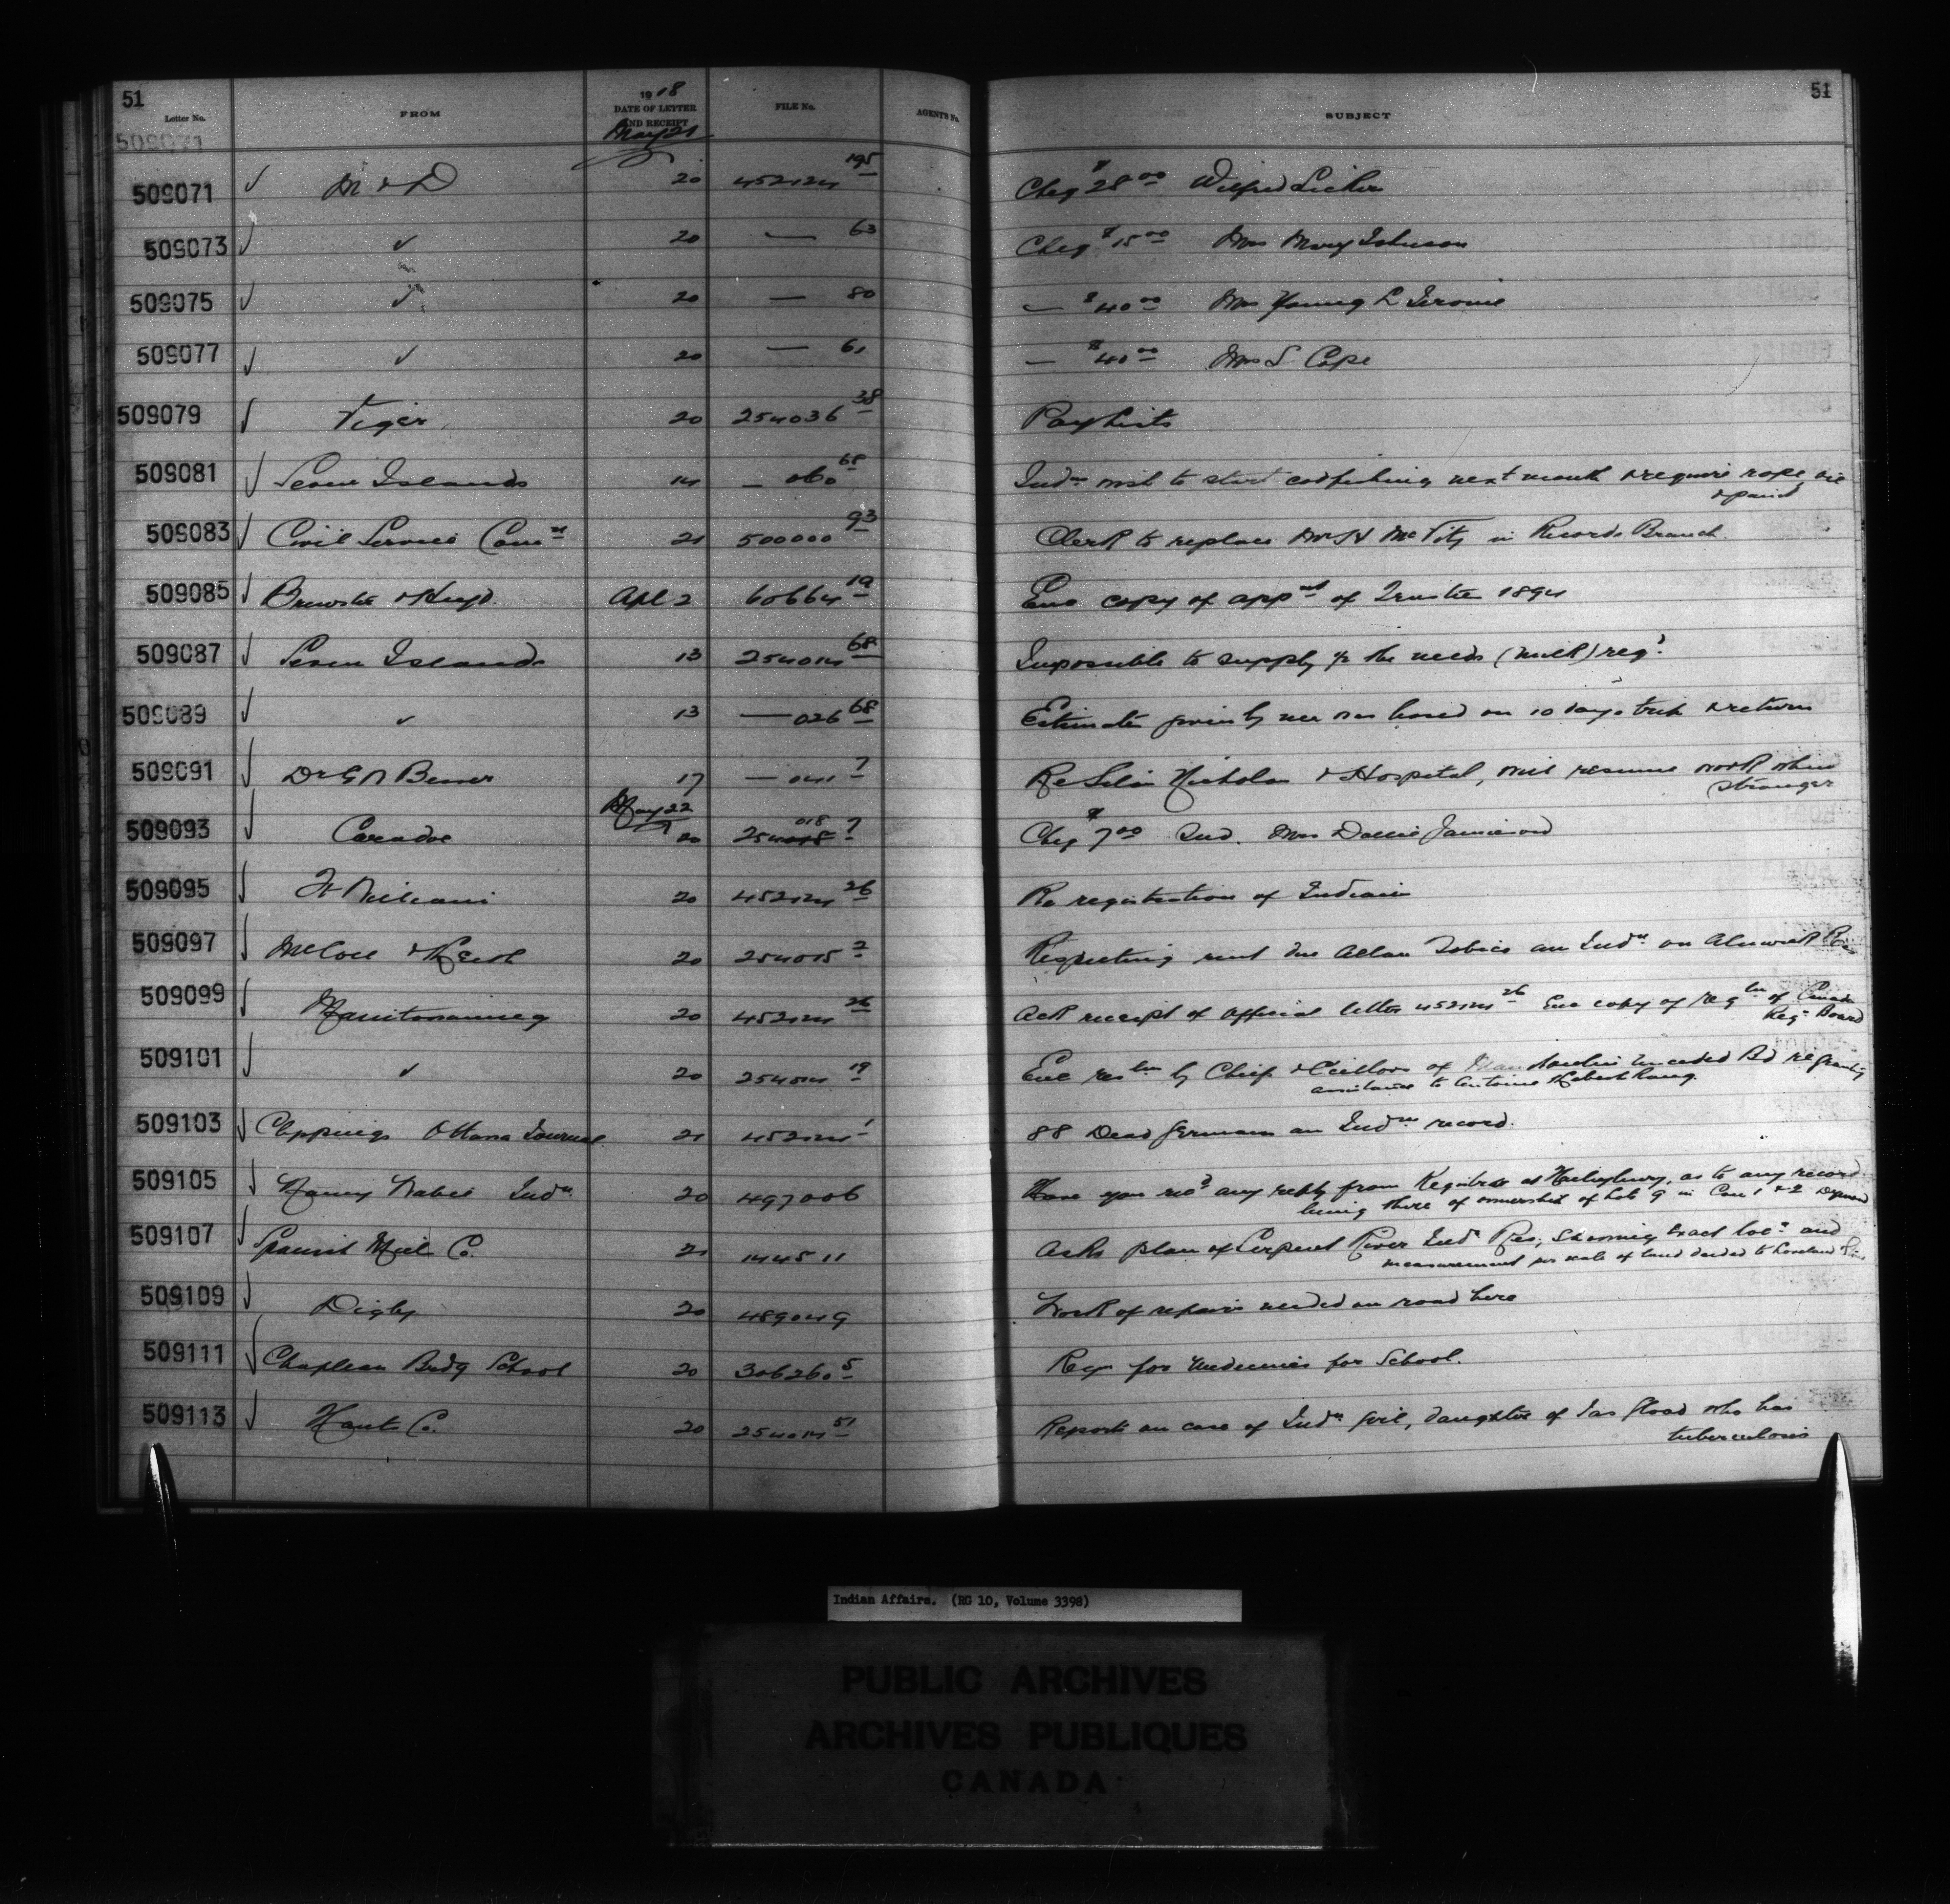 51
51
1918
Letter No.
FROM
DATE OF LETTER AND RECEIPT
FILE No.
AGENT'S No.
SUBJECT
509071
May 21
509071 M & D 20 452124 195 Cheq $28 00 Wilfred
509073 ✓ 20 — 63 Cheq $15 00 Mrs Mary Johnson
509075 ✓ 20 — 80 — $40 00 Mrs Young L Jerome
509077 ✓ 20 — 61 — $40 00 Mrs S Cope
509079 Viger 20 254036 38 Paylists
509081 Seven Islands 14 — 060 68 Indns wish to start codfishing next month & require rope, oil
& paint
509083 Civil Service Comn 21 500000 93 Clerk to replace in Records Branch.
509085 Brewster & Apl 2 60664 19 Enc copy of appnt of Trustee 1894
509087 Seven Islands 13 254014 68 Impossible to supply ½ the needs (milk) reqd
509089 ✓ 13 — 026 68 Estimate given by me was based on 10 days trip & return
509091 Dr G N 17 — 041 7 Re Nicholas & Hospital, will resume work when
stronger
May 22
509093 Caradoc 20 254018 018 7 Cheq $7 00 Ind. Mrs Dollie Jamieson
509095 Ft William 20 452124 26 Re registration of Indians
509097 McColl & Keith 20 254015 2 Respecting rent due Allan Tobico an Indn on Alnwick Res
509099 Manitowaning 20 452124 26 Ack receipt of official letter 452124 26 Enc copy of regtn of Canada
Regn Board
509101 ✓ 20 254014 19 Enc restn by Chief & Cllors of Manitoulin Unceded Bd re granting
assistance to Antoine
509103 Clippings Ottawa Journal 21 452124 1 88 Dead Germans an Indns record.
509105 Nancy Indn 20 497006 Have you recd any reply from Registrar at Haileybury, as to any record
being there of ownership of Lot 9 in Con 1 & 2 Dymond
509107 Spanish Mill Co. 21 144511 Asks plan of Serpent River Indn Res; showing exact locn and
measurement per scale of land deeded to Loveland
509109 Digby 20 489049 Work of repairs needed on road here
509111 Chapleau Brdg School 20 306260 5 Req for medicines for School.
509113 Hants Co. 20 254014 51 Reports on case of Indn girl, daughter of Jas who has
tuberculosis
Indian Affairs. (RG 10, Volume 3398)
PUBLIC ARCHIVES
ARCHIVES PUBLIQUES
CANADA